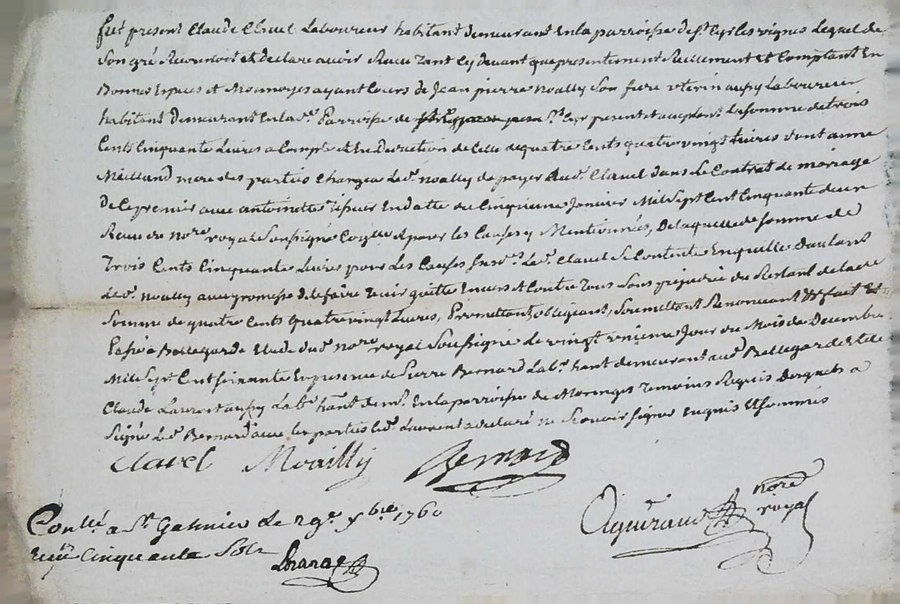 fut present Claude Clavel Laboureur habitant demeurant En la parroisse de st Cyr les vignes Lequel de
Son gré Reconnoit et declare avoir Receu Tant Cy devant que presentement Reellement et Comptant En
Bonnes Espèces et Monnoyes ayant Cours de Jean pierre Noailly Son frere vterin aussy Laboureur
habitant demeurant En lad.e Parroisse de st Cyr present et acceptant La somme de trois
Cents Cinquante Livres a Compte et En Deduction de Celle de quatre Cents quatrevingt Livres dont anne
Mere des parties Chargea Led. Noailly de payer aud. Clavel dans Le Contrat de mariage
De Ce premier avec antoinette Tissier En datte du Cinquieme Janvier Mil Sept Cent Cinquante deux
Receu du No.re royal Soussigné Et pour les Causes y Mentionnées, De laquelle de somme de
Trois Cents Cinquante Livres pour Les Causes Led. Clavel Se Contente En quitte
led. Noailly avec promesse de le faire tenir quitte Envers et Contre Tous Sans prejudice du Restant de lade
Somme de quatre Cents Quatrevingt Livres, Promettant obligeant, Soumettant Renonceant fait Et
Passé a Bellegarde Etude du No.re royal Soussigné Le vingt Jour du Mois de Decembre
Mil Sept Cent soixante En presence de Pierre Bernard Lab.r hant demeurant aud. Bellegarde Et de
Claude Laurent aussy Lab.r hant dem.t En la parroisse de Moringes Temoins Requis Desquels a
Signé Led. Bernard avec les parties Led. Laurent a declaré ne Scavoir signer Enquis Et sommés
Clavel Noailly Bernard
Con.llé a St Galmier Le 29e xbre 1760
reçu Cinquante Sols
nore
royal